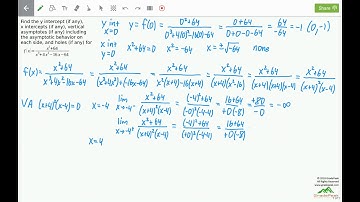 Find the y intercept (if any),
x intercepts (if any), vertical
asymptotes (if any) including
the asymptotic behavior on
each side, and holes (if any) for
y int x=0 y=f(0)= 0²+64 / 0³+4(0)²-16(0)-64 = 0+64 / 0+0-0-64 = 64 / -64 = -1 (0,-1)
x int y=0 x²+64=0 x²=-64 x=±√-64 none
f(x)= x²+64 / x³+4x²-16x-64 = x²+64 / (x³+4x²)+(-16x-64) = x²+64 / x²(x+4)-16(x+4) = x²+64 / (x+4)(x²-16) = x²+64 / (x+4)(x+4)(x-4) = x²+64 / (x+4)²(x-4)
VA (x+4)²(x-4)=0 x=-4 lim x→-4⁻ x²+64 / (x+4)²(x-4) = (-4)²+64 / (-0)²(-4-4) = 16+64 / +0(-8) = +80 / -0 = -∞
lim x→-4⁺ x²+64 / (x+4)²(x-4) = (-4)²+64 / (+0)²(-4-4) = 16+64 / +0(-8)
x=4